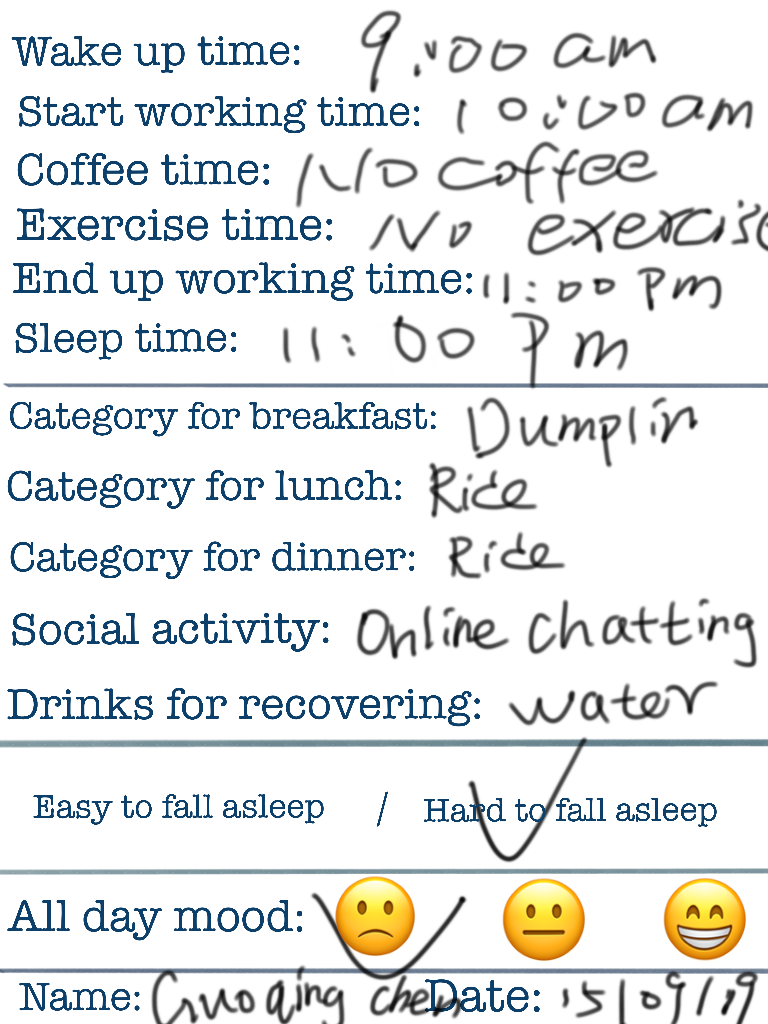 Wake up time: 9:00 am
Start working time: 10:00 am
Coffee time: No coffee
Exercise time: No exercise
End up working time: 11:00 Pm
Sleep time: 11:00 Pm
Category for breakfast: Dumplin
Category for lunch: Rice
Category for dinner: Rice
Social activity: Online chatting
Drinks for recovering: water
Easy to fall asleep / Hard to fall asleep
All day mood:
Name: Guoqing chen Date: 15/09/19